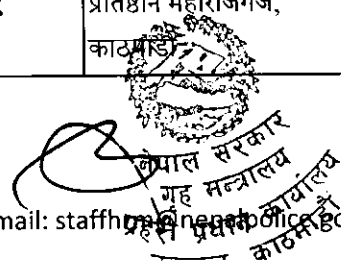 प्रतिष्ठान महाराजगंज,
काठमाडौं
नेपाल सरकार
गृह मन्त्रालय
प्रहरी प्रधान कार्यालय
काठमाडौं
mail: staffhrm@nepalpolice.go